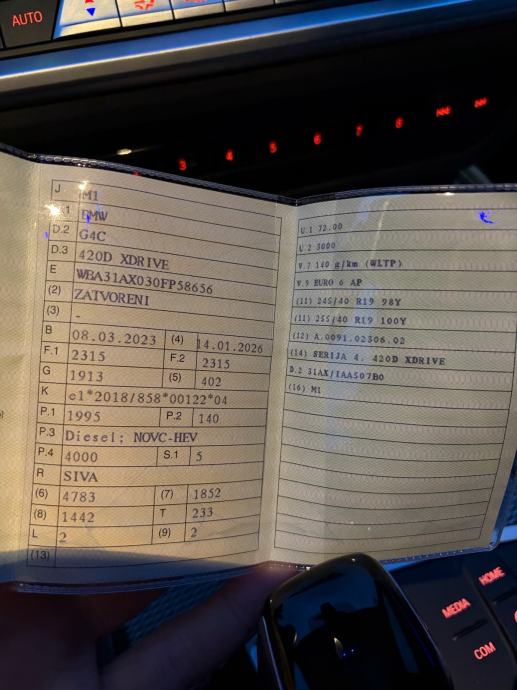 AUTO
3 4 5 6 7 8
J M1
D.1 BMW
D.2 G4C
D.3 420D XDRIVE
E WBA31AX030FP58656
(2) ZATVORENI
(3) -
B 08.03.2023 (4) 14.01.2026
F.1 2315 F.2 2315
G 1913 (5) 402
K e1*2018/858*00122*04
P.1 1995 P.2 140
P.3 Diesel; NOVC-HEV
P.4 4000 S.1 5
R SIVA
(6) 4783 (7) 1852
(8) 1442 T 233
L 2 (9) 2
(13)
U.1 72.00
U.2 3000
V.7 140 g/km (WLTP)
V.9 EURO 6 AP
(11) 245/40 R19 98Y
(11) 255/40 R19 100Y
(12) A.0091.02306.02
(14) SERIJA 4. 420D XDRIVE
D.2 31AX/1AAS07B0
(16) M1
MEDIA
HOME
COM